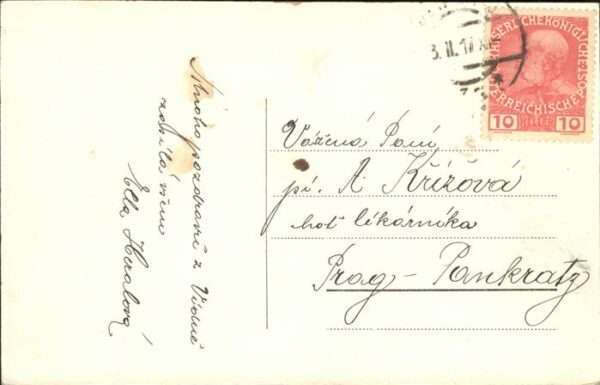 Mnoho pozdravů z Vídně
zasílá všem
Ella
Vážená Paní
pí. A. Křížová
hoť lékárníka
Prag - Pankratz
3. II. 17
KAISERLICHEKÖNIGLICHE
ÖSTERREICHISCHE POST
10 HELLER 10